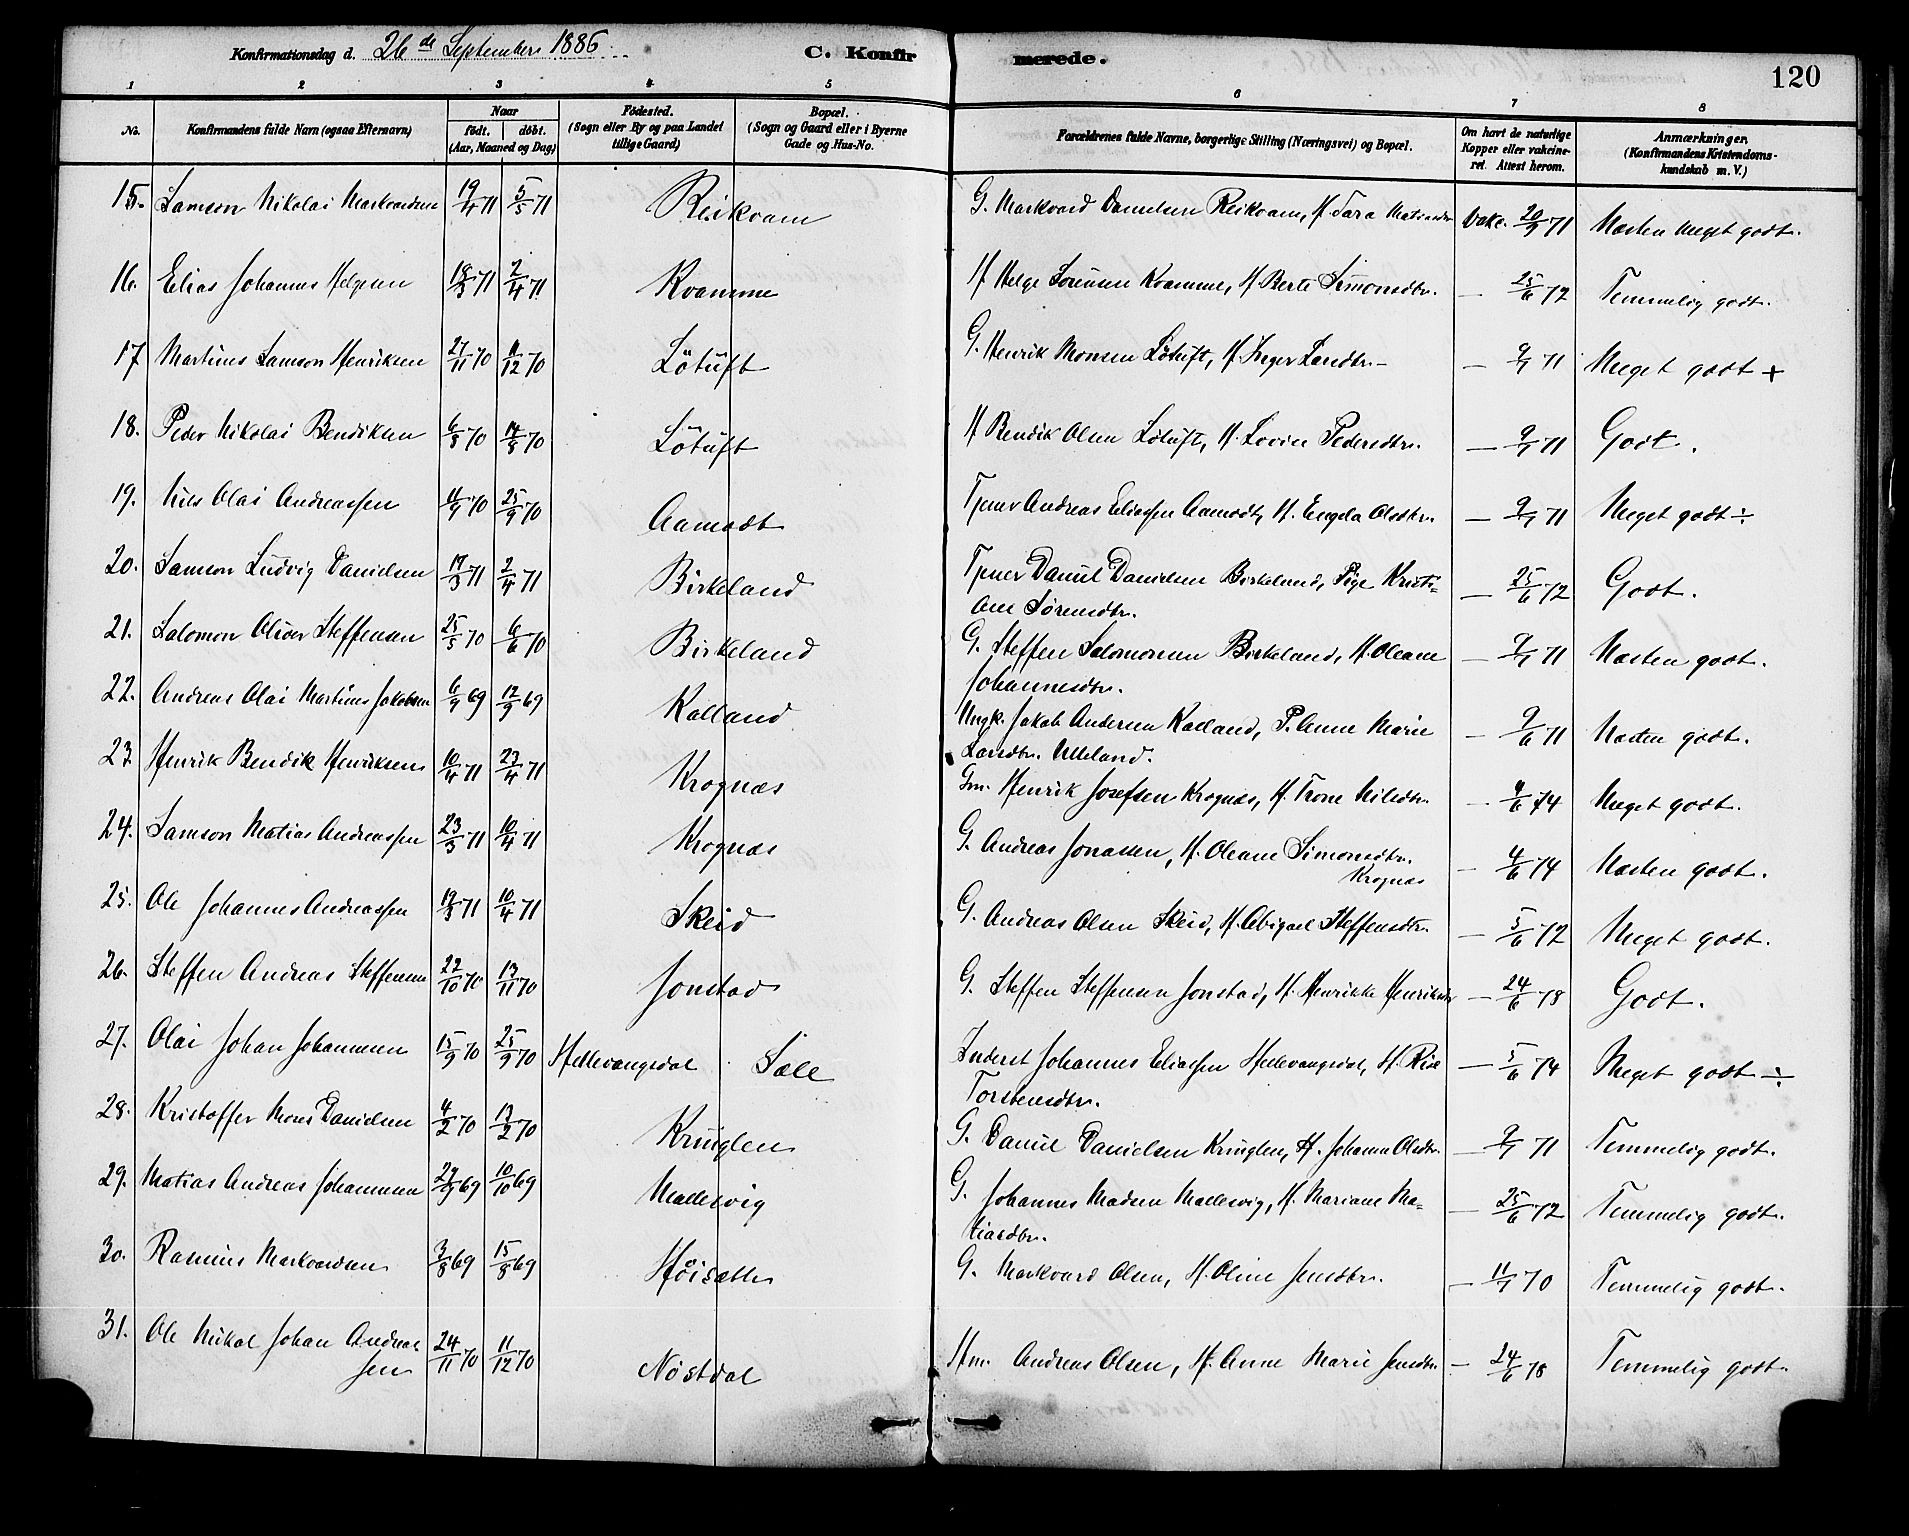 Konfirmationsdag d. 26de September 1886
C. Konfirmerede.
120
1 2 3 4 5 6 7 8
No. Konfirmandens fulde Navn (ogsaa Efternavn) Naar født. døbt. (Aar, Maaned og Dag) Fødested. (Sogn eller By og paa Landet tillige Gaard) Bopæl. (Sogn og Gaard eller i Byerne Gade og Hus-No. Forældrenes fulde Navne, borgerlige Stilling (Næringsvei) og Bopæl. Om havt de naturlige Kopper eller vakcineret. Attest herom. Anmærkninger. (Konfirmandens Kristendomskundskab m. V.)
15. Samson Nikolai Markvardsen 19/4 71 5/5 71 Reikvam G. Markvard Danielsen Reikvam, H. Sara Matiasdtr. Vakc. 20/9 71 Næsten meget godt.
16. Elias Johannes Helgesen 18/3 71 2/4 71 Kvamme H Helge Sørensen Kvamme, H. Berte Simonsdtr. — 25/6 72 Temmelig godt.
17 Martinus Samson Henriksen 27/11 70 11/12 70 Løtuft G. Henrik Monsen Løtuft, H. Inger Larsdtr. — 9/7 71 Meget godt +
18. Peder Nikolai Bendiksen 6/8 70 14/8 70 Løtuft H Bendik Olsen Løtuft, H. Lovise Pedersdtr. — 9/7 71 Godt.
19. Nils Olai Andreassen 11/9 70 25/9 70 Aamodt Tjener Andreas Eliassen Aamodt, H. Engela Olsdtr. — 9/7 71 Meget godt ÷
20. Samson Ludvig Danielsen 17/3 71 2/4 71 Birkeland Tjener Daniel Danielsen Birkeland, Pige Kristiane Sørensdtr. — 25/6 72 Godt.
21. Salomon Oliver Steffensen 25/5 70 6/6 70 Birkeland G. Steffen Salomonsen Birkeland, H. Oleane Johannesdtr. — 9/7 71 Næsten godt.
22. Andreas Olai Martinus Jakobsen 6/9 69 12/9 69 Kalland Ungk. Jakob Andersen Kalland, P. Anne Marie Larsdtr. Ulleland. — 9/6 71 Næsten godt.
23 Henrik Bendik Henriksen 10/4 71 23/4 71 Krognæs Gm. Henrik Josefsen Krognæs, H. Trone Nilsdtr. — 4/6 74 Meget godt.
24. Samson Matias Andreassen 23/3 71 10/4 71 Krognæs G. Andreas Jonassen, H. Oleane Simonsdtr. Krognæs — 4/6 74 Næsten godt.
25. Ole Johannes Andreassen 19/3 71 10/4 71 Skeid G. Andreas Olsen Skeid, H. Abigael Steffensdtr. — 5/6 72 Meget godt.
26. Steffen Andreas Steffensen 22/10 70 13/11 70 Jonstad G. Steffen Steffensen Jonstad, H. Henrikke Henriksdtr — 24/6 78 Godt.
27. Olai Johan Johannesen 15/9 70 25/9 70 Hellevangsdal Sæle Inderst Johannes Eliassen Hellevangsdal, H. Risе Torstensdtr. — 5/6 74 Meget godt ÷
28. Kristoffer Mons Danielsen 4/2 70 13/2 70 Kringlen G. Daniel Danielsen Kringlen, H. Johanne Olsdtr. — 9/7 71 Temmelig godt.
29. Matias Andreas Johannesen 22/9 69 10/10 69 Mallesvig G. Johannes Madsen Mallesvig, H. Mariane Matiasdtr. — 25/6 72 Temmelig godt.
30. Rasmus Markvardsen 3/8 69 15/8 69 Høisæter G. Markvard Olsen, H. Oline Jensdtr. — 11/7 70 Temmelig godt.
31. Ole Mikal Johan Andreassen 24/11 70 11/12 70 Nøstdal Hm. Andreas Olsen, H. Anne Marie Jensdtr. — 24/6 78 Temmelig godt.